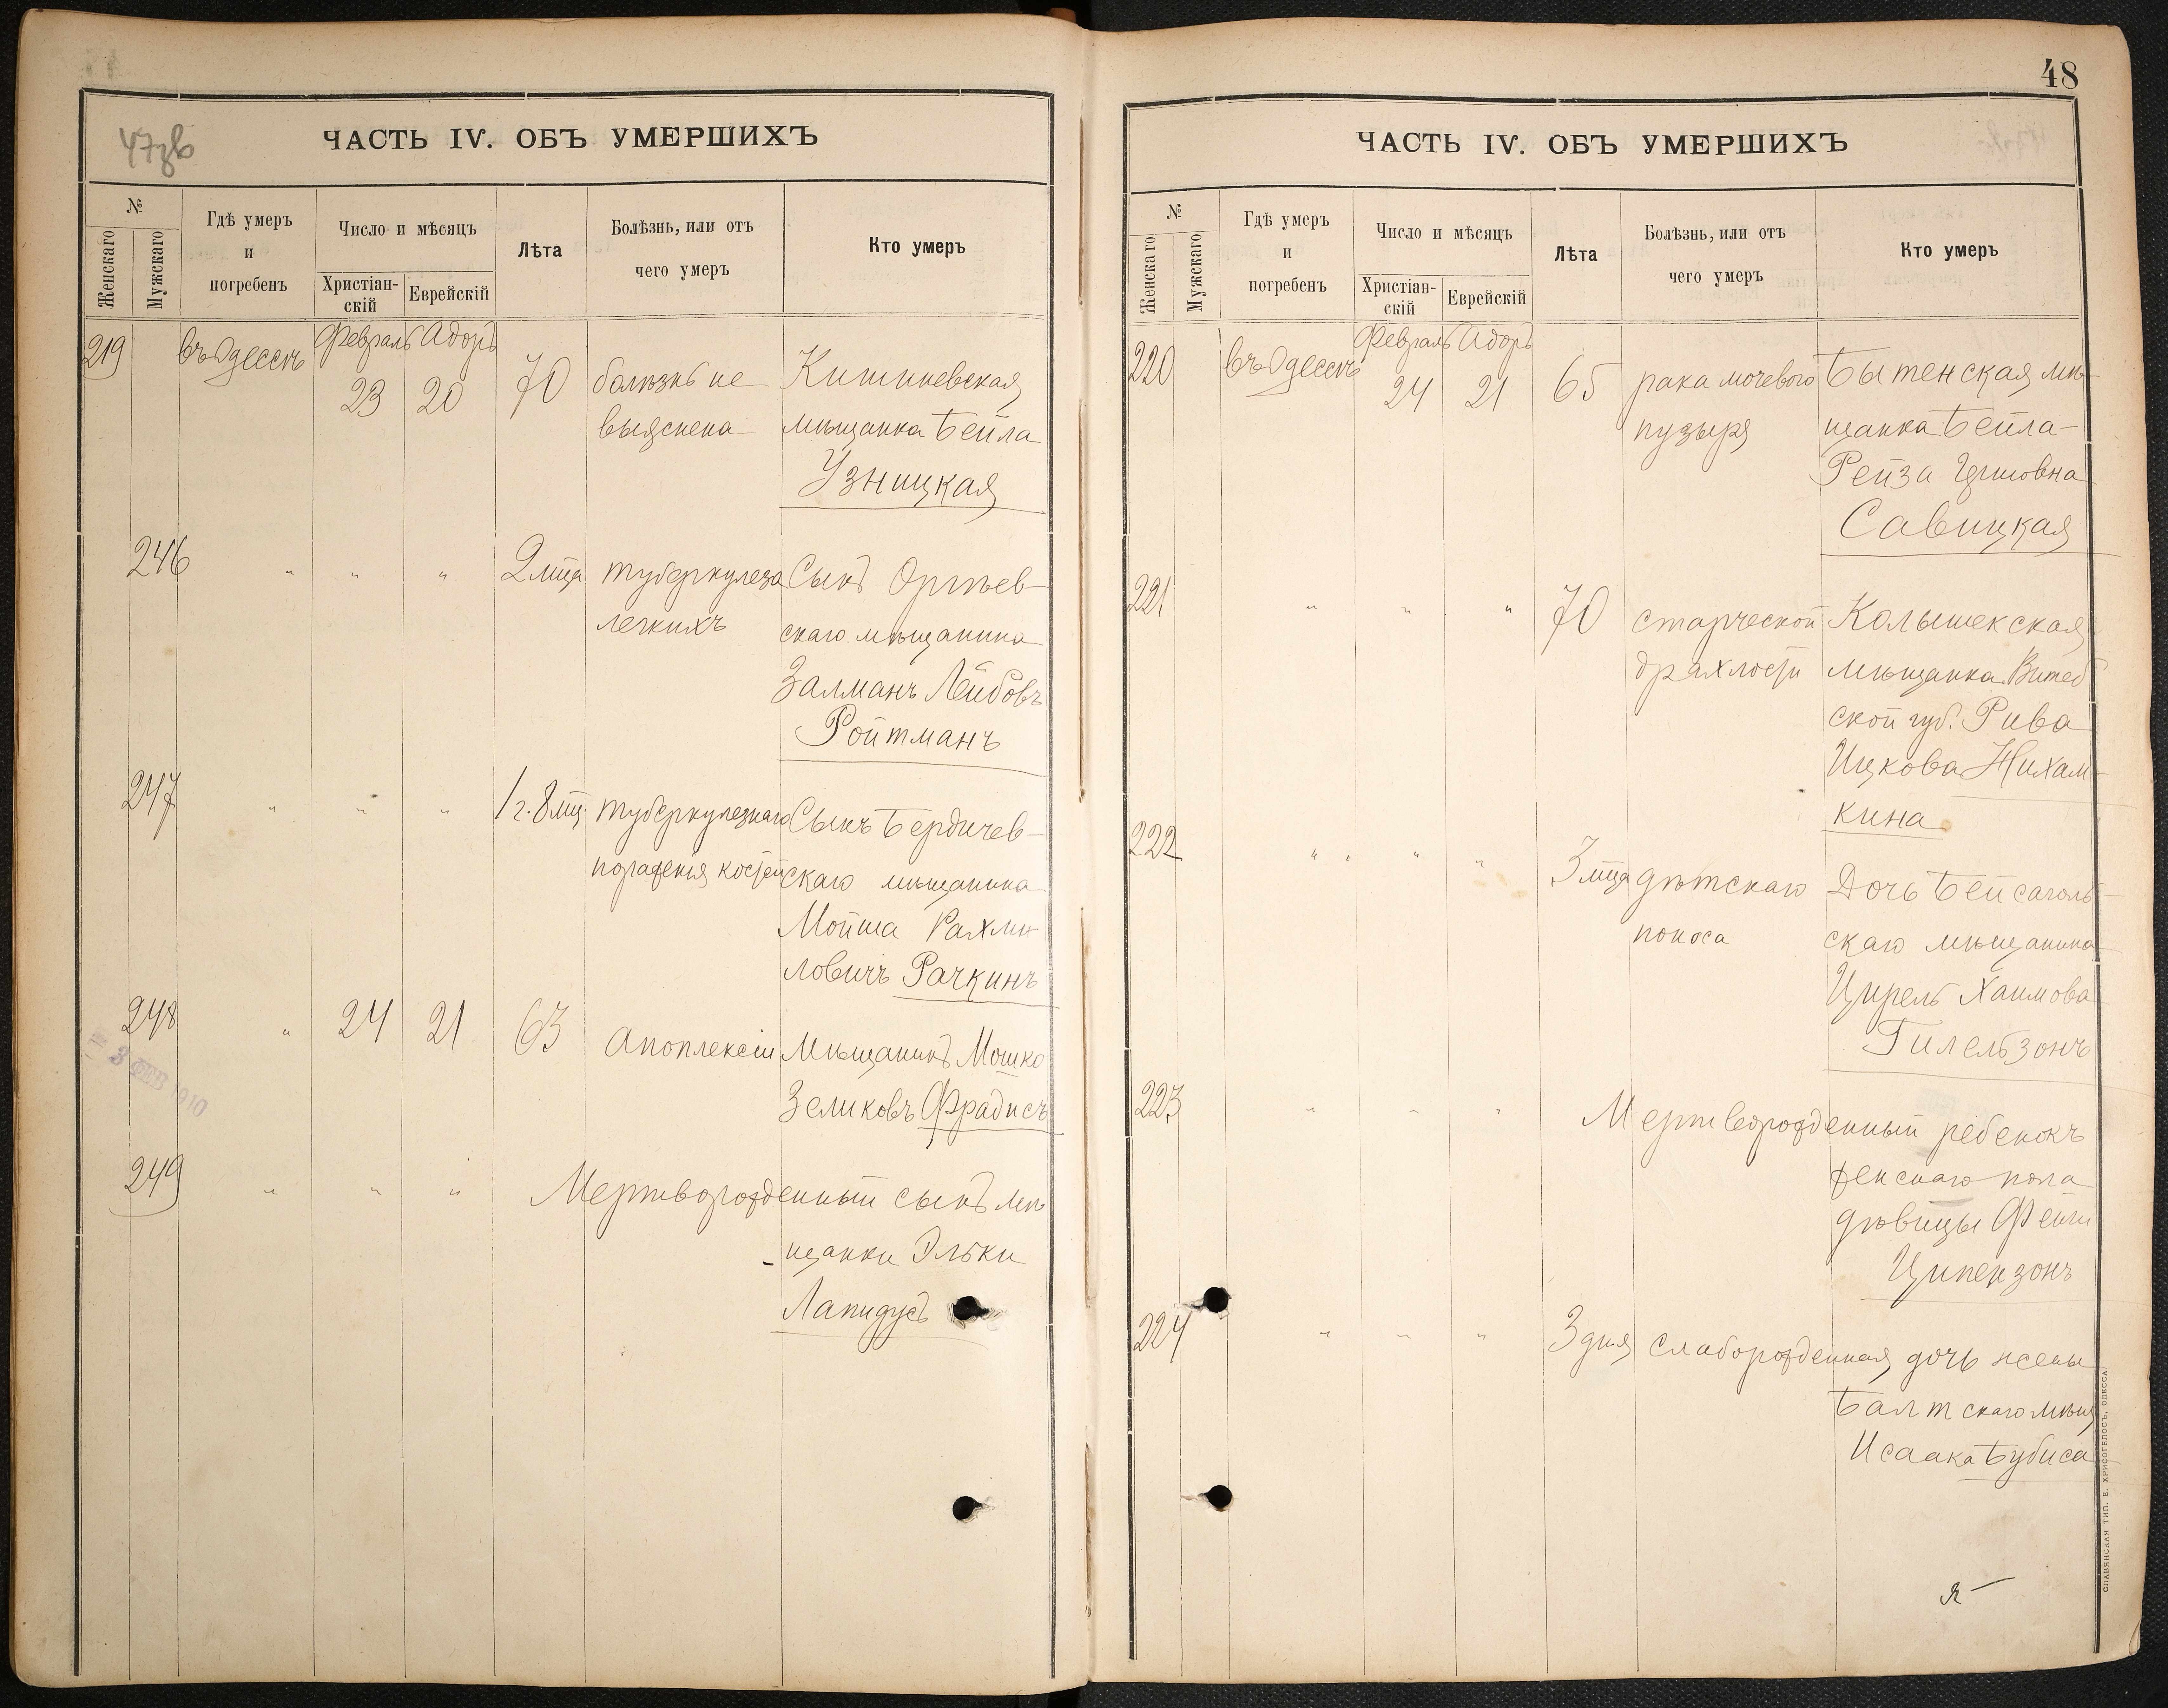 47зв
ЧАСТЬ IV. ОБЪ УМЕРШИХЪ
№
Женскаго
Мужскаго
Гдѣ умеръ
и
погребенъ
Число и мѣсяцъ
Христіан-
скій
Еврейскій
Лѣта
Болѣзнь, или отъ
чего умеръ
Кто умеръ
219 въ Одессѣ Февраль Адоръ
23 20 70 болѣзнь не Кишиневская
выяснена мѣщанка Бейла
Узницкая
246 " " " 2 мца туберкулеза Сынъ Оргѣев-
легкихъ скаго мѣщанина
Залманъ Лейбовъ
Ройтманъ
247 " " " 1 г. 8 мц туберкулезнаго Сынъ Бердичев-
пораженія костей скаго мѣщанина
Мойша Рахми-
ловичъ Рачкинъ
248 " 24 21 63 Апоплексіи Мѣщанинъ Мошко
Зеликовъ Фрадисъ
3 ФЕВ 1910
249 " " " Мертворожденный сынъ мѣ-
щанки Эльки
Лапидусъ
48
ЧАСТЬ IV. ОБЪ УМЕРШИХЪ
№
Женскаго
Мужскаго
Гдѣ умеръ
и
погребенъ
Число и мѣсяцъ
Христіан-
скій
Еврейскій
Лѣта
Болѣзнь, или отъ
чего умеръ
Кто умеръ
220 въ Одессѣ Февраль Адоръ
24 21 65 рака мочевого Бытенская мѣ-
пузыря щанка Бейла-
Рейза
Савицкая
221 " " " 70 старческой Колышекская
дряхлости мѣщанка Витеб
ской губ. Рива
Ицкова Нихам-
кина
222 " " " 3 мца дѣтскаго Дочь Бейсаголь-
поноса скаго мѣщанина
Цирель Хаимова
Гилельзонъ
223 " " " Мертворожденный ребенокъ
женскаго пола
дѣвицы Фейги
Ципензонъ
224 " " " 3 дня слаборожденная дочь жены
Балтскаго мѣщ
Исаака Бубиса
СЛАВЯНСКАЯ ТИП. Е. ХРИСОГЕЛОСЪ, ОДЕССА.